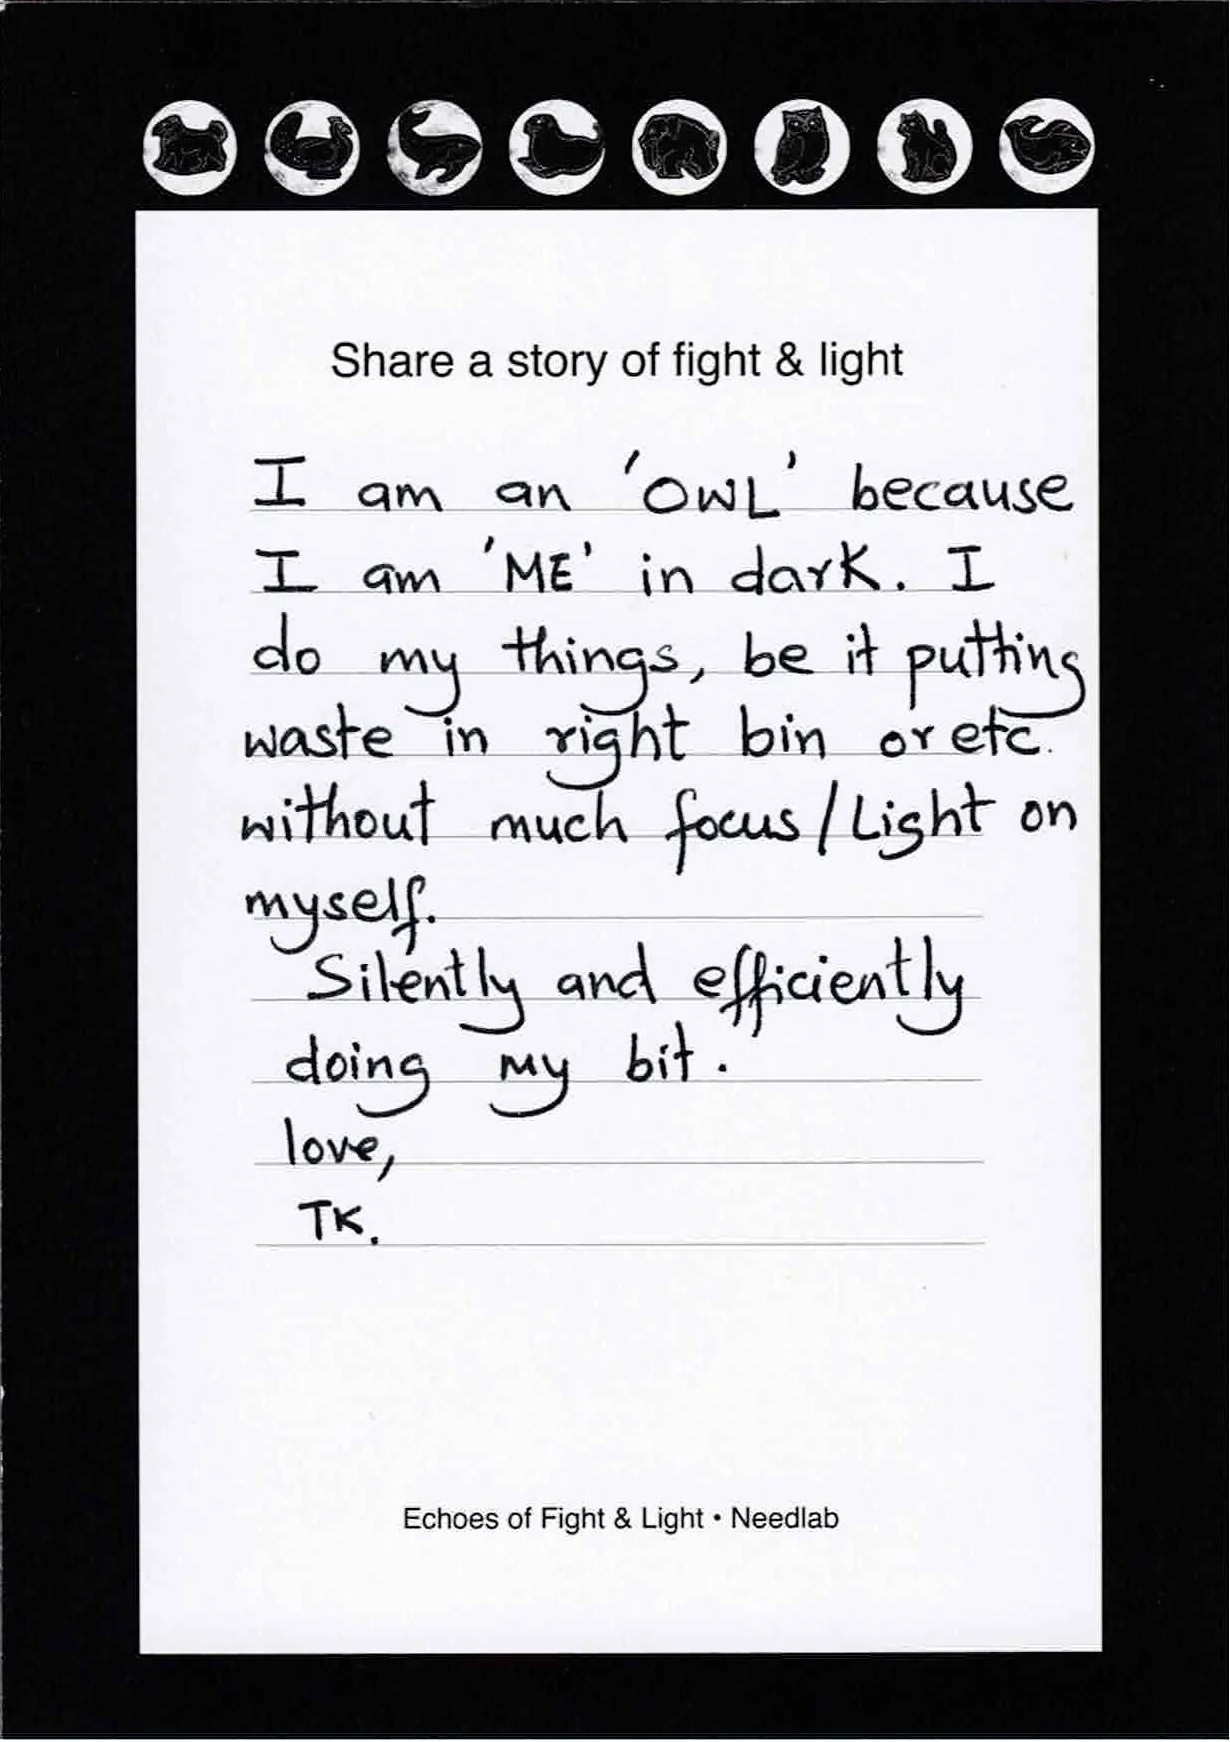 Share a story of fight & light
I am an 'OWL' because
I am 'ME' in dark. I
do my things, be it putting
waste in right bin or etc.
without much focus/Light on
myself.
Silently and efficiently
doing my bit.
love,
TK.
Echoes of Fight & Light • Needlab